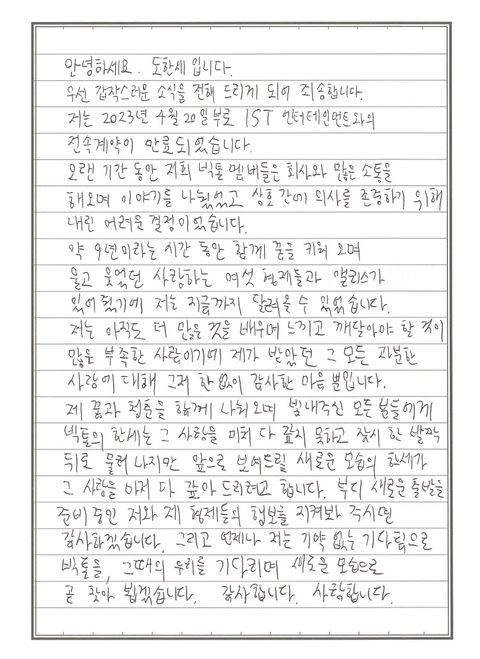 안녕하세요. 도한세 입니다.
우선 갑작스러운 소식을 전해 드리게 되어 죄송합니다.
저는 2023년 4월 20일부로 IST 엔터테인먼트와의
전속계약이 만료되었습니다.
오랜 기간 동안 저희 빅톤 멤버들은 회사와 많은 소통을
해오며 이야기를 나눴었고 상호간에 의사를 존중하기 위해
내린 어려운 결정이었습니다.
약 9년이라는 시간 동안 함께 꿈을 키워 오며
울고 웃었던 사랑하는 여섯 형제들과 앨리스가
있어줬기에 저는 지금까지 달려올 수 있었습니다.
저는 아직도 더 많은 것을 배우며 느끼고 깨달아야 할 것이
많은 부족한 사람이기에 제가 받았던 그 모든 과분한
사랑에 대해 그저 한 없이 감사한 마음 뿐입니다.
제 꿈과 청춘을 함께 나눠오며 빛내주신 모든 분들에게
빅톤의 한세는 그 사랑을 미처 다 갚지 못하고 잠시 한 발짝
뒤로 물러 나지만 앞으로 보여드릴 새로운 모습의 한세가
그 사랑을 마저 다 갚아 드리려고 합니다. 부디 새로운 출발을
준비 중인 저와 제 형제들의 행보를 지켜봐 주시면
감사하겠습니다. 그리고 언제나 저는 기약 없는 기다림으로
빅톤을, 그때의 우리를 기다리며 새로운 모습으로
곧 찾아 뵙겠습니다. 감사합니다. 사랑합니다.